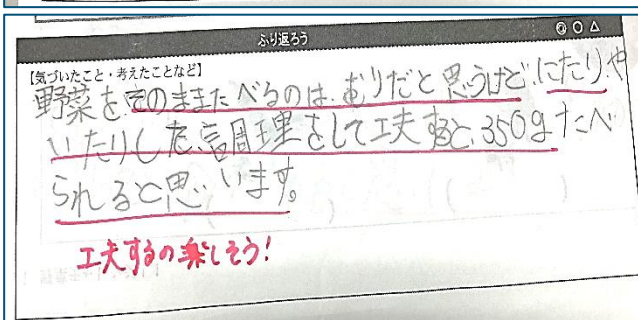 ふり返ろう ◎ ○ △
【気づいたこと・考えたことなど】
野菜をそのままたべるのは、むりだと思うけど、にたりや
いたりした、調理をして工夫すると、350gたべ
られると思います。
工夫するの楽しそう!